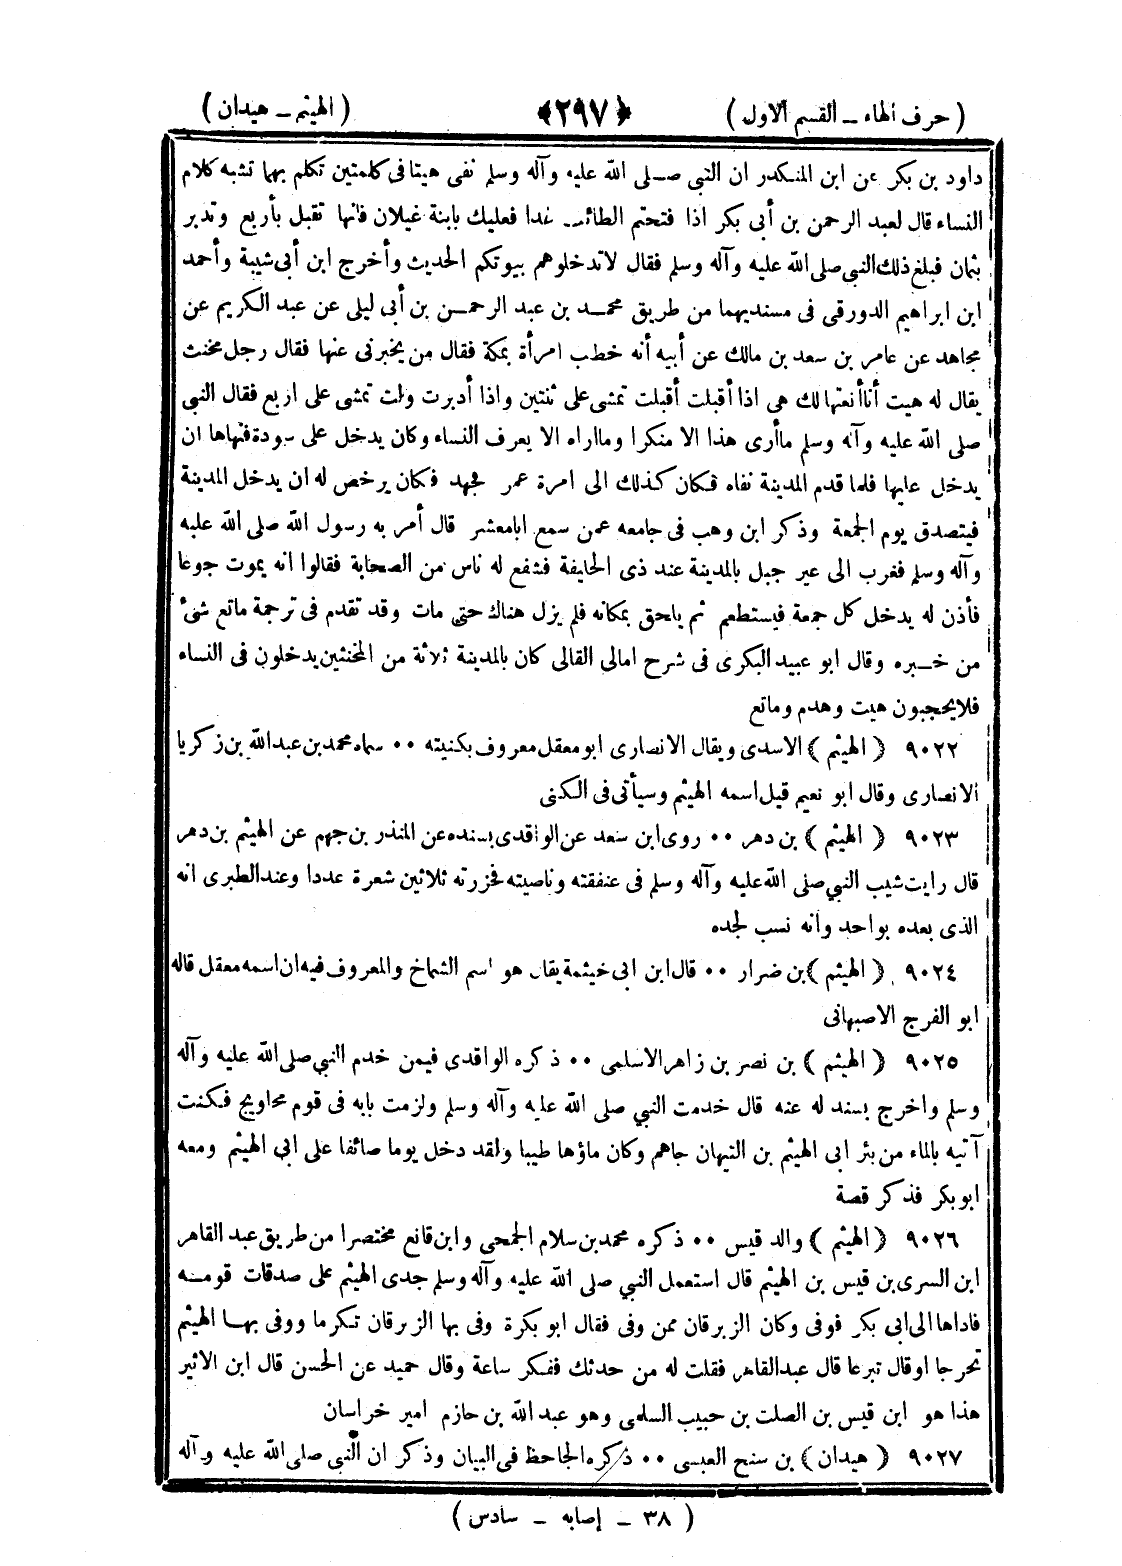 ( حرف الهاء ــ القسم الاول ) ﴿٢٩٧﴾ ( الهيثم ــ هيدان )
داود بن بكر عن ابن المنكدر ان النبي صلى الله عليه وآله وسلم نفى هيتا فى كلمتين تكلم بهما تشبه كلام
النساء قال لعبد الرحمن بن أبى بكر اذا فتحتم الطائف غدا فعليك بابنة غيلان فانها تقبل بأربع وتدبر
بثمان فبلغ ذلك النبي صلى الله عليه وآله وسلم فقال لاتدخلوهم بيوتكم الحديث وأخرج ابن أبى شيبة وأحمد
ابن ابراهيم الدورقى فى مسنديهما من طريق محمد بن عبد الرحمن بن أبى ليلى عن عبد الكريم عن
مجاهد عن عامر بن سعد بن مالك عن أبيه أنه خطب امرأة بمكة فقال من يخبرنى عنها فقال رجل مخنث
يقال له هيت أناأنعتهالك هى اذا أقبلت أقبلت تمشى على ثنتين واذا أدبرت ولت تمشى على اربع فقال النبي
صلى الله عليه وآله وسلم ماأرى هذا الا منكرا ومااراه الا يعرف النساء وكان يدخل على سودة فنهاها ان
يدخل عليها فلما قدم المدينة نفاه فكان كذلك الى امرة عمر فجهد فكان يرخص له ان يدخل المدينة
فيتصدق يوم الجمعة وذكر ابن وهب فى جامعه عمن سمع ابامعشر قال أمر به رسول الله صلى الله عليه
وآله وسلم فغرب الى عير جبل بالمدينة عند ذى الحليفة فشفع له ناس من الصحابة فقالوا انه يموت جوعا
فأذن له يدخل كل جمعة فيستطعم ثم يلحق بمكانه فلم يزل هناك حتى مات وقد تقدم فى ترجمة ماتع شئ
من خبره وقال ابو عبيد البكرى فى شرح امالى القالى كان بالمدينة ثلاثة من المخنثين يدخلون فى النساء
فلايحجبون هيت وهدم وماتع
٩٠٢٢ ( الهيثم ) الاسدى ويقال الانصارى ابومعقل معروف بكنيته ٠٠ سماه محمد بن عبد الله بن زكريا
الانصارى وقال ابو نعيم قيل اسمه الهيثم وسيأتى فى الكنى
٩٠٢٣ ( الهيثم ) بن دهر ٠٠ روى ابن سعد عن الواقدى بسنده عن المنذر بن جهم عن الهيثم بن دهر
قال رايت شيب النبي صلى الله عليه وآله وسلم فى عنفقته وناصيته فحزرته ثلاثين شعرة عددا وعند الطبرى انه
الذى بعده بواحد وانه نسب لجده
٩٠٢٤ ( الهيثم ) بن ضرار ٠٠ قال ابن ابى خيثمة يقال هو اسم الشماخ والمعروف فيه ان اسمه معقل قاله
ابو الفرج الاصبهانى
٩٠٢٥ ( الهيثم ) بن نصر بن زاهر الاسلمى ٠٠ ذكره الواقدى فيمن خدم النبي صلى الله عليه وآله
وسلم واخرج بسند له عنه قال خدمت النبي صلى الله عليه وآله وسلم ولزمت بابه فى قوم محاويج فكنت
آتيه بالماء من بئر ابى الهيثم بن التيهان جاهم وكان ماؤها طيبا ولقد دخل يوما صائفا على ابى الهيثم ومعه
ابو بكر فذكر قصة
٩٠٢٦ ( الهيثم ) والد قيس ٠٠ ذكره محمد بن سلام الجمحى وابن قانع مختصرا من طريق عبد القاهر
ابن السرى بن قيس بن الهيثم قال استعمل النبي صلى الله عليه وآله وسلم جدى الهيثم على صدقات قومه
فاداها الى ابى بكر فوفى وكان الزبرقان ممن وفى فقال ابو بكرة وفى بها الزبرقان تكرما ووفى بها الهيثم
تحرجا اوقال تبرعا قال عبدالقاهر فقلت له من حدثك ففكر ساعة وقال حميد عن الحسن قال ابن الاثير
هذا هو ابن قيس بن الصلت بن حبيب السلمى وهو عبد الله بن حازم امير خراسان
٩٠٢٧ ( هيدان ) بن سنح العبسى ٠٠ ذكره الجاحظ فى البيان وذكر ان النبي صلى الله عليه وآله
( ٣٨ ــ إصابه ــ سادس )